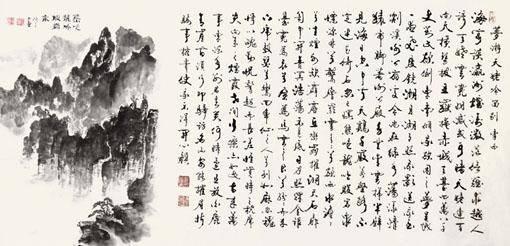 夢游天姥吟留別 李白
海客談瀛洲煙濤微茫信難求越人
語天姥雲霓明滅或可睹天姥連天
向天橫勢拔五嶽掩赤城天台四萬八千
丈對此欲倒東南傾我欲因之夢吳越
一夜飛度鏡湖月湖月照我影送我至
剡溪謝公宿處今尚在淥水蕩漾清
猿啼腳著謝公屐身登青雲梯半壁
見海日空中聞天雞千巖萬轉路不
定迷花倚石忽已暝熊咆龍吟殷巖泉
慄深林兮驚層巔雲青青兮欲雨水澹澹
兮生煙列缺霹靂丘巒崩摧洞天石扉
訇然中開青冥浩蕩不見底日月照耀金銀
臺霓為衣兮風為馬雲之君兮紛紛而來
下虎鼓瑟兮鸞回車仙之人兮列如麻忽魂
悸以魄動怳驚起而長嗟惟覺時之枕席
失向來之煙霞世間行樂亦如此古來萬
事東流水別君去兮何時還且放白鹿
青崖間須行即騎訪名山安能摧眉折
腰事權貴使我不得開心顏